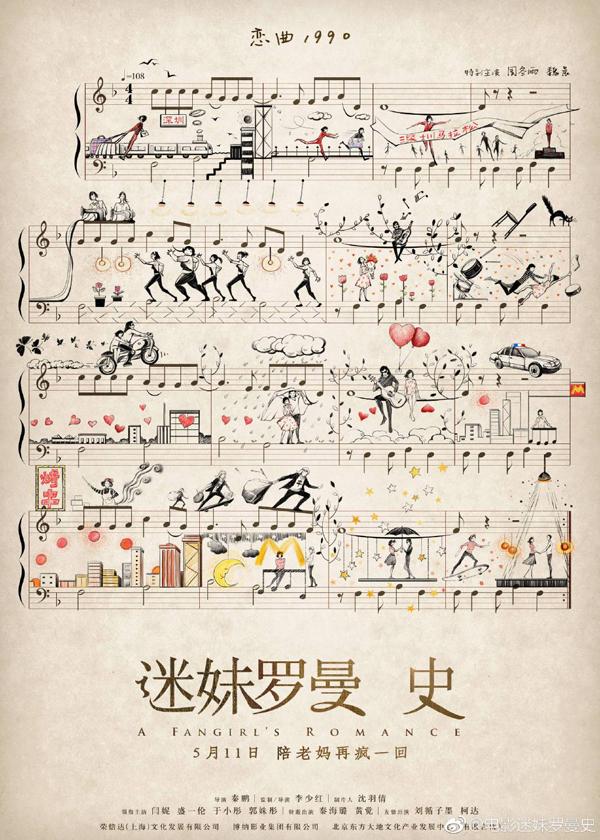 恋曲1990
特别主演 周冬雨 魏晨
♩=108
4
4
深圳
深圳马拉松
M
M
迷妹罗曼 史
A FANGIRL'S ROMANCE
5月11日 陪老妈再疯一回
导演 秦鹏 | 监制/导演 李少红 | 制片人 沈羽倩
领衔主演 闫妮 盛一伦 于小彤 郭姝彤 | 特别出演 秦海璐 黄觉 | 友情出演 刘循子墨 柯达
荣信达(上海)文化发展有限公司 博纳影业集团有限公司 北京东方大地文化产业发展中
@电影迷妹罗曼史